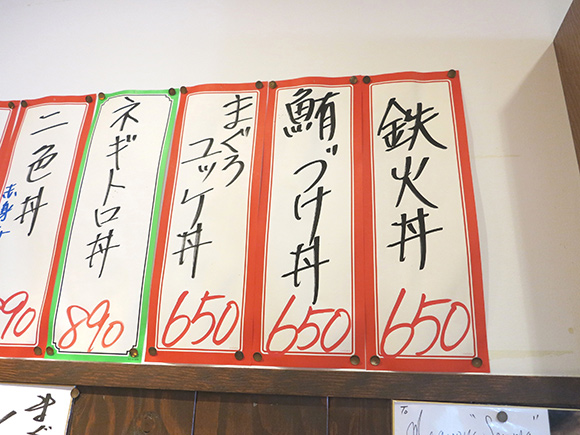 鉄火丼
650
鮪づけ丼
650
まぐろ
ユッケ丼
650
ネギトロ丼
890
二色丼
赤身
90
まぐ
To